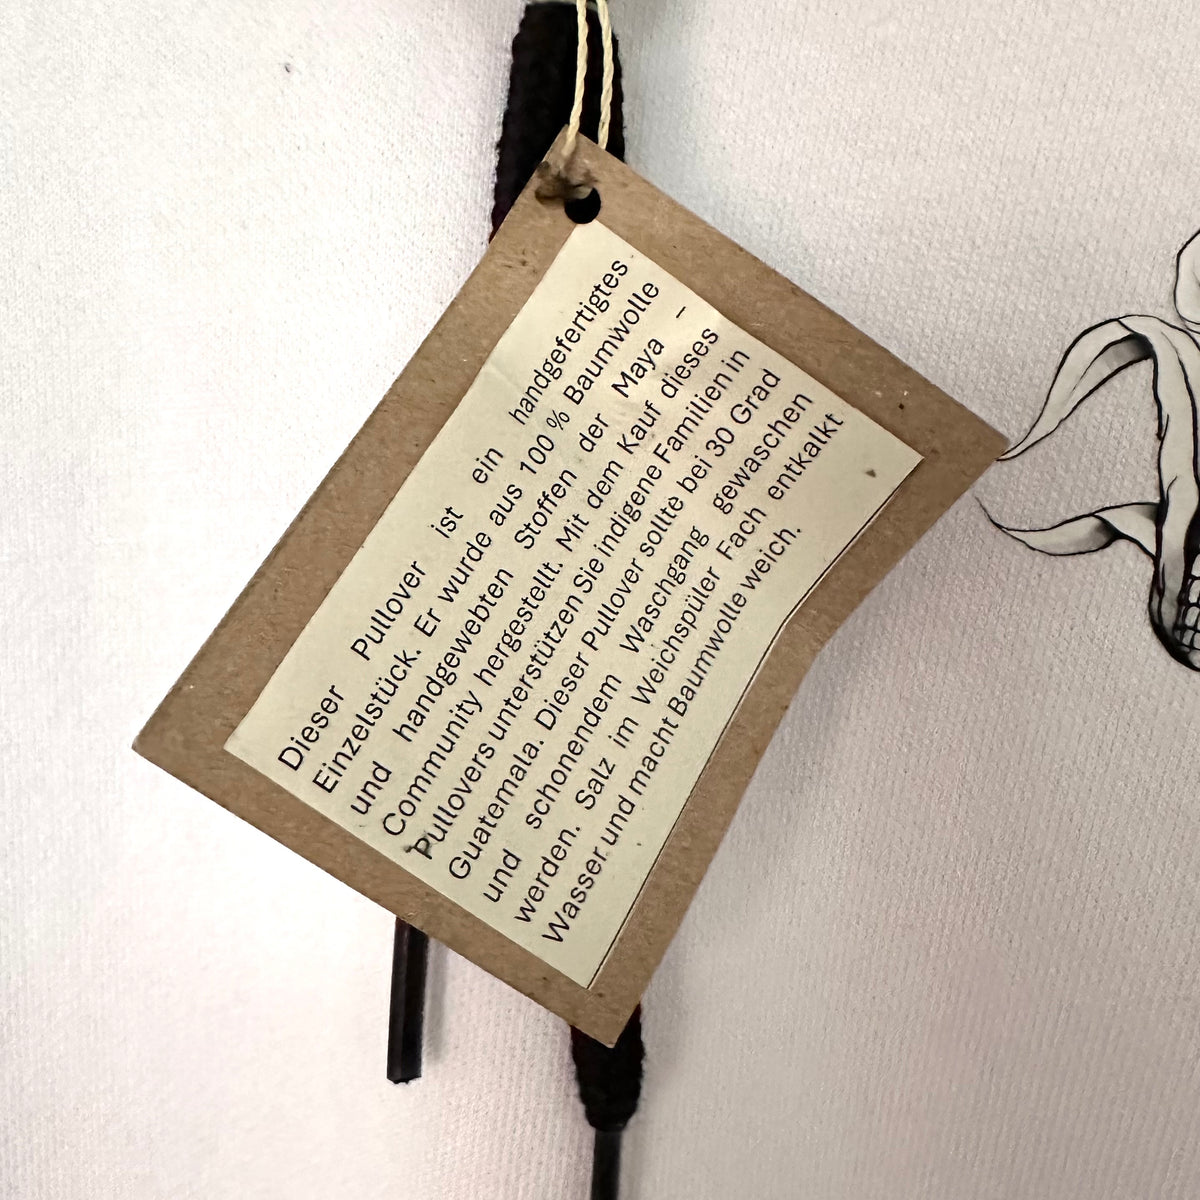 Dieser Pullover ist ein handgefertigtes
Einzelstück. Er wurde aus 100 % Baumwolle
und handgewebten Stoffen der Maya –
Community hergestellt. Mit dem Kauf dieses
Pullovers unterstützen Sie indigene Familien in
Guatemala. Dieser Pullover sollte bei 30 Grad
und schonendem Waschgang gewaschen
werden. Salz im Weichspüler Fach entkalkt
Wasser und macht Baumwolle weich.